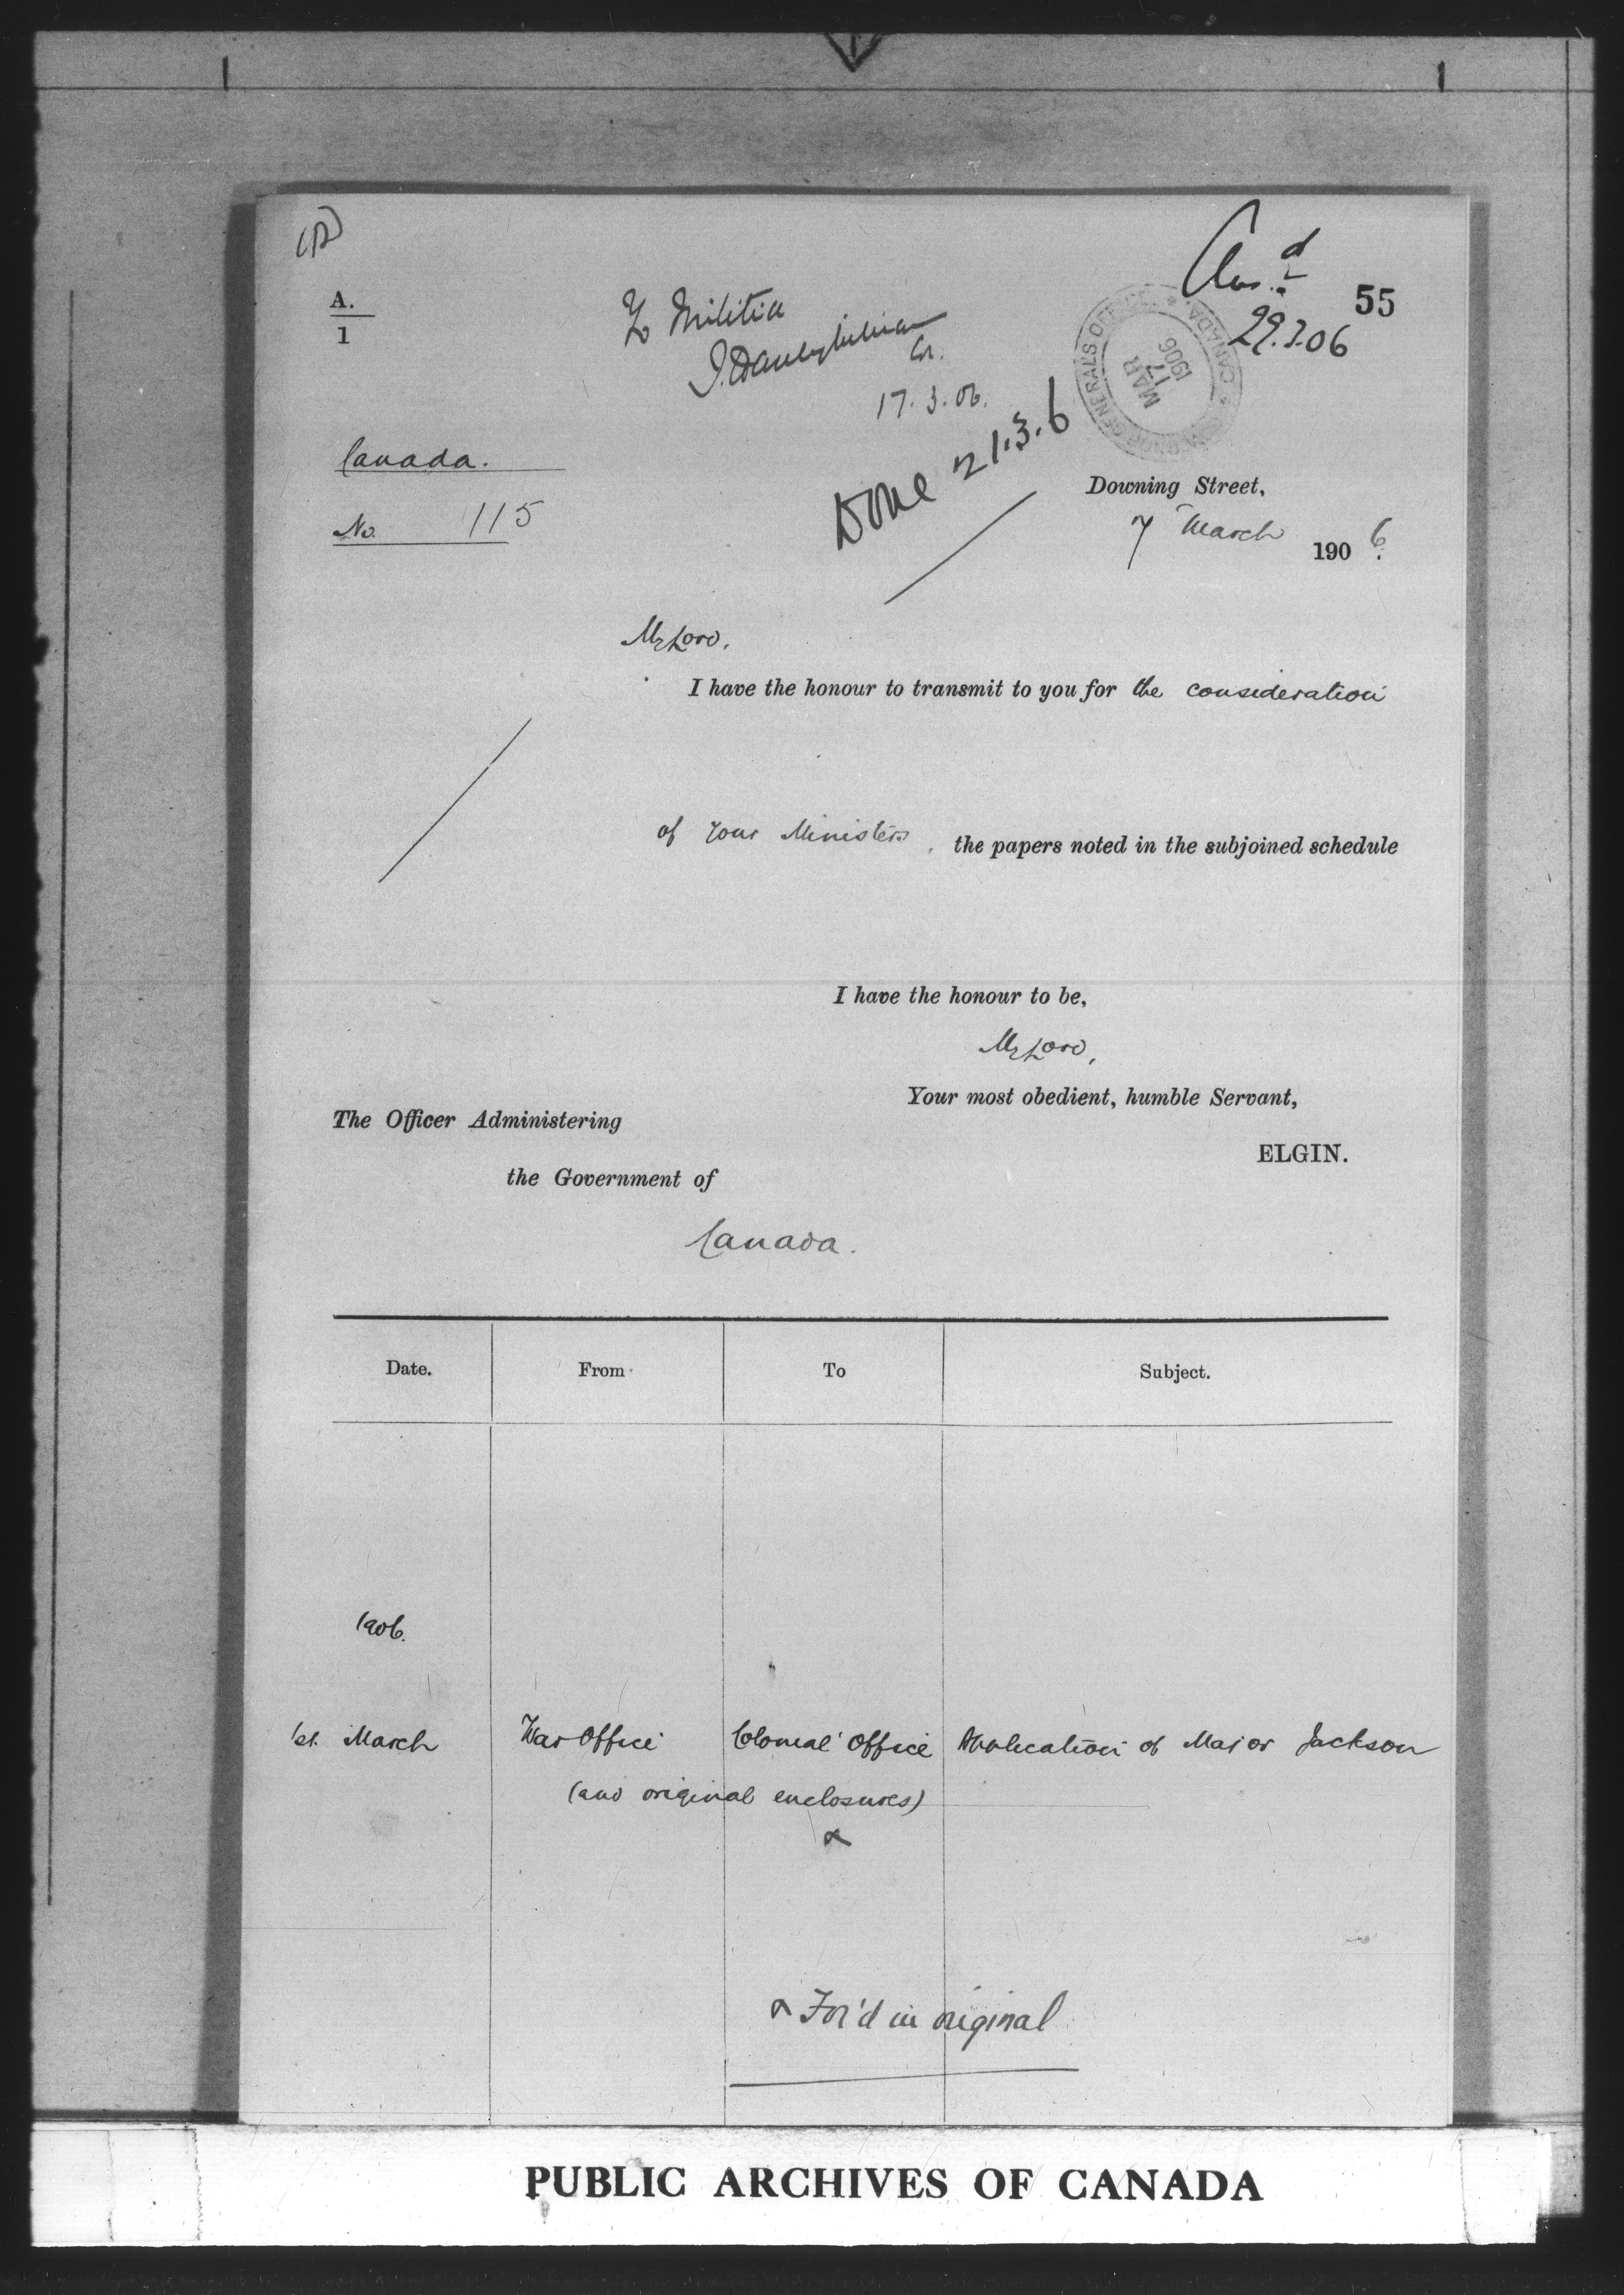 A.
1
To Militia
17.3.06.
Done 21.3.6
Ans.d
29.3.06
55
GOVERNOR GENERAL'S OFFICE * CANADA *
MAR
17
1906
Canada.
No. 115
Downing Street,
7 March 1906.
My Lord,
I have the honour to transmit to you for the consideration
of your Ministers, the papers noted in the subjoined schedule
I have the honour to be,
My Lord,
Your most obedient, humble Servant,
ELGIN.
The Officer Administering
the Government of
Canada.
Date. From To Subject.
1906.
1st. March War Office Colonial Office Application of Major Jackson
(and original enclosures)
x
x For'd in original
PUBLIC ARCHIVES OF CANADA